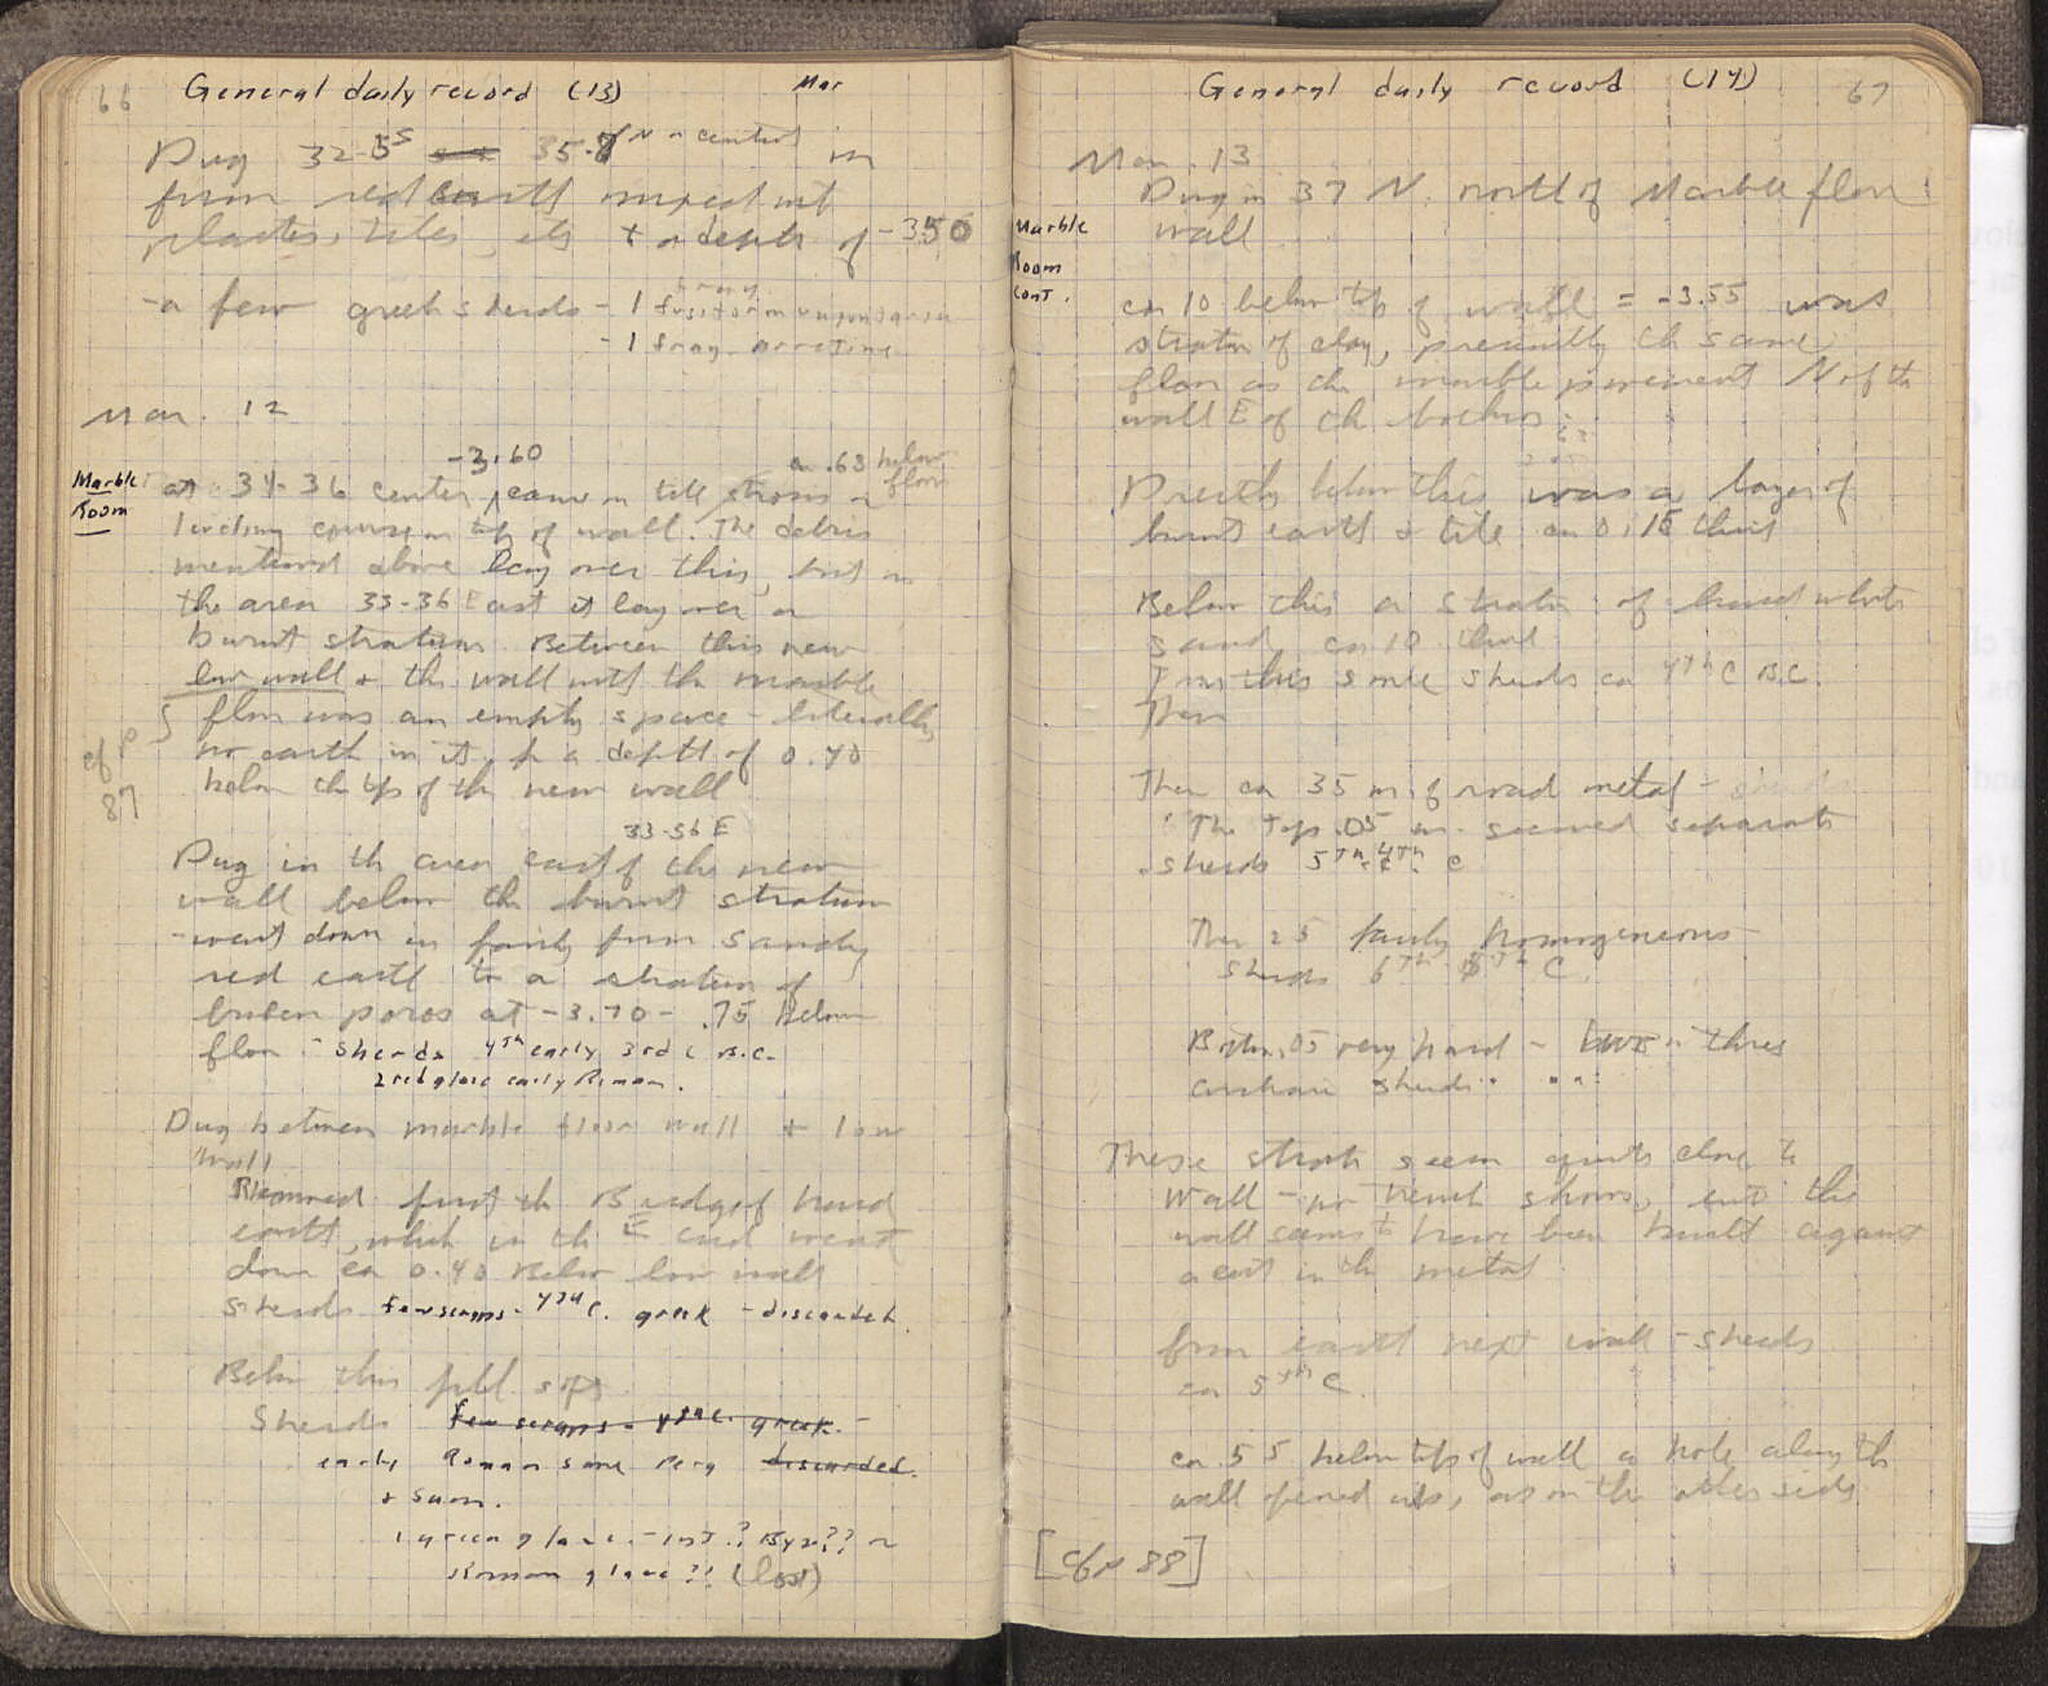 66 General daily record (13) Mar
Dug 32-35 S 35-37 N - center in
from red earth mixed wit
plaster, tiles, etc to a depth of -3.50
-a few greek sherds - 1 frag. fusiform unguentaria
- 1 frag. arretine
Mar. 12
Marble Room
-3.60 ca .63 below floor
at 34-36 center, came on tile
course on top of wall. The debris
mentioned above lay over this, but in
the area 33-36 East it lay over a
burnt stratum. Between this new
low wall & the wall with the marble
floor was an empty space - literally
no earth in it, for a depth of 0.40
below the top of the new wall
cf p 87
33-36 E
Dug in the area east of the new
wall below the burnt stratum
- went down in fairly firm sandy
red earth to a stratum of
broken poros at -3.70 - .75 below
floor - sherds 4th early 3rd c B.C.
2 red glaze early Roman.
Dug between marble floor wall + low
wall
Removed first the of hard
earth, which in the E end went
down ca 0.40 below low wall
Sherds few scraps - 4th c. greek - discarded.
Below this fill soft
Sherds few scraps - 4th c. greek -
early Roman some Perg discarded.
+ Sam.
1 green glaze - int.? Byz?? or
Roman glaze?! (lost)
General daily record (14) 67
Mar. 13
Dug in 37 N. north of Marble floor
wall
Marble
Room
cont.
ca 10 below top of wall = -3.55 was
stratum of clay, presumably the same
floor as the marble pavement N of the
wall E of the bothros
Directly below this was a layer of
burnt earth & tile ca 0.15 thick
Below this a stratum of hard white
sand ca 10 thick
From this some sherds ca 4th C B.C.
Then
Then ca 35 m. of road metal -
The top .05 m. seemed separate
sherds 5th-4th c
Then 25 fairly homogeneous
sherds 6th-5th C.
Bottom .05 very hard - three
archaic sherds " " "
These strata seem quite close to
wall - no trench shows, but the
wall seems to have been built against
a cut in the metal
from earth next wall - sherds
ca 5th C.
ca .55 below top of wall a hole along the
wall opened up, as on the other side
[cf p 88]